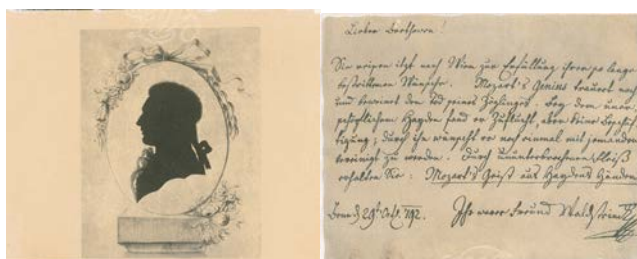 Lieber Beethowen!
Sie reisen itzt nach Wien zur Erfüllung ihrer so lange
bestrittenen Wünsche. Mozart's Genius trauert noch
und beweinet den Tod seines Zöglinges. Bey dem uner-
schöpflichem Hayden fand er Zuflucht, aber keine Beschäf-
tigung; durch ihn wünscht er noch einmal mit jemanden
vereinigt zu werden. Durch ununterbrochenen Fleiß
erhalten Sie: Mozart's Geist aus Haydens Händen
Bonn d 29t Oct. 792. Ihr warer Freund Waldstein